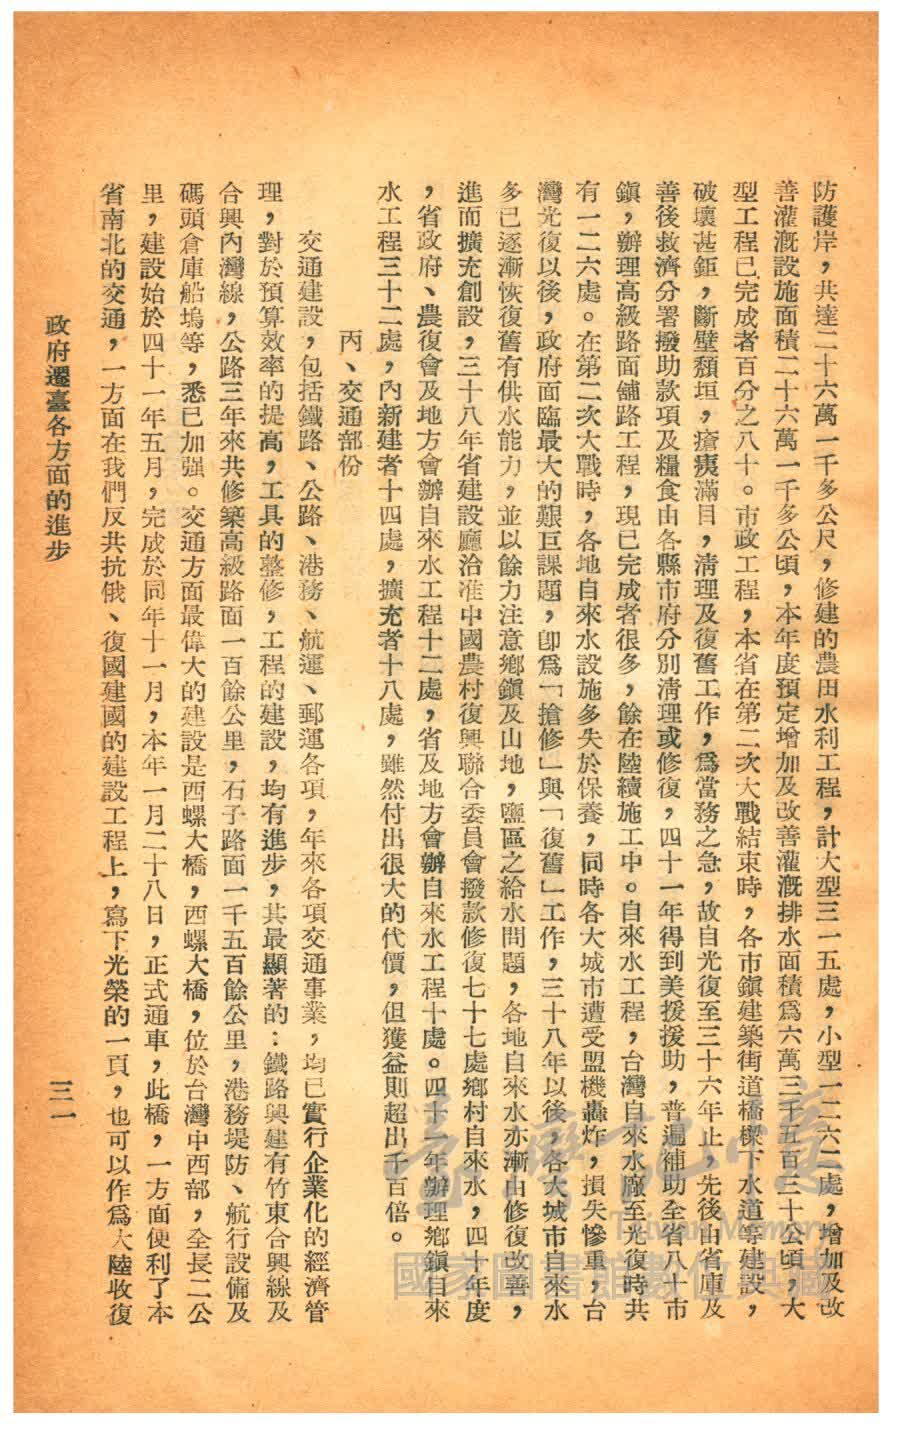 防護岸，共達二十六萬一千多公尺，修建的農田水利工程，計大型三一五處，小型一二六二處，增加及改
善灌漑設施面積二十六萬一千多公頃，本年度預定增加及改善灌漑排水面積爲六萬三千五百三十公頃，大
型工程已完成者百分之八十。市政工程，本省在第二次大戰結束時，各市鎭建築街道橋樑下水道等建設，
破壞甚鉅，斷壁頹垣，瘡痍滿目，淸理及復舊工作，爲當務之急，故自光復至三十六年止，先後由省庫及
善後救濟分署撥助款項及糧食由各縣市府分別淸理或修復，四十一年得到美援援助，普遍補助全省八十市
鎭，辦理高級路面舖路工程，現已完成者很多，餘在陸續施工中。自來水工程，台灣自來水廠至光復時共
有一二六處。在第二次大戰時，各地自來水設施多失於保養，同時各大城市遭受盟機轟炸，損失慘重，台
灣光復以後，政府面臨最大的艱巨課題，卽爲「搶修」與「復舊」工作，三十八年以後，各大城市自來水
多已逐漸恢復舊有供水能力，並以餘力注意鄉鎭及山地，鹽區之給水問題，各地自來水亦漸由修復改善，
進而擴充創設，三十八年省建設廳洽准中國農村復興聯合委員會撥款修復七十七處鄉村自來水，四十年度
，省政府、農復會及地方會辦自來水工程十二處，省及地方會辦自來水工程十處。四十一年辦理鄉鎭自來
水工程三十二處，內新建者十四處，擴充者十八處，雖然付出很大的代價，但獲益則超出千百倍。
丙、交通部份
交通建設，包括鐵路、公路、港務、航運、郵運各項，年來各項交通事業，均已實行企業化的經濟管
理，對於預算效率的提高，工具的整修，工程的建設，均有進步，其最顯著的：鐵路興建有竹東合興線及
合興內灣線，公路三年來共修築高級路面一百餘公里，石子路面一千五百餘公里，港務堤防、航行設備及
碼頭倉庫船塢等，悉已加强。交通方面最偉大的建設是西螺大橋，西螺大橋，位於台灣中西部，全長二公
里，建設始於四十一年五月，完成於同年十一月，本年一月二十八日，正式通車，此橋，一方面便利了本
省南北的交通，一方面在我們反共抗俄、復國建國的建設工程上，寫下光榮的一頁，也可以作爲大陸收復
政府遷臺各方面的進步
三一
臺灣記憶
Taiwan Memory
國家圖書館數位典藏